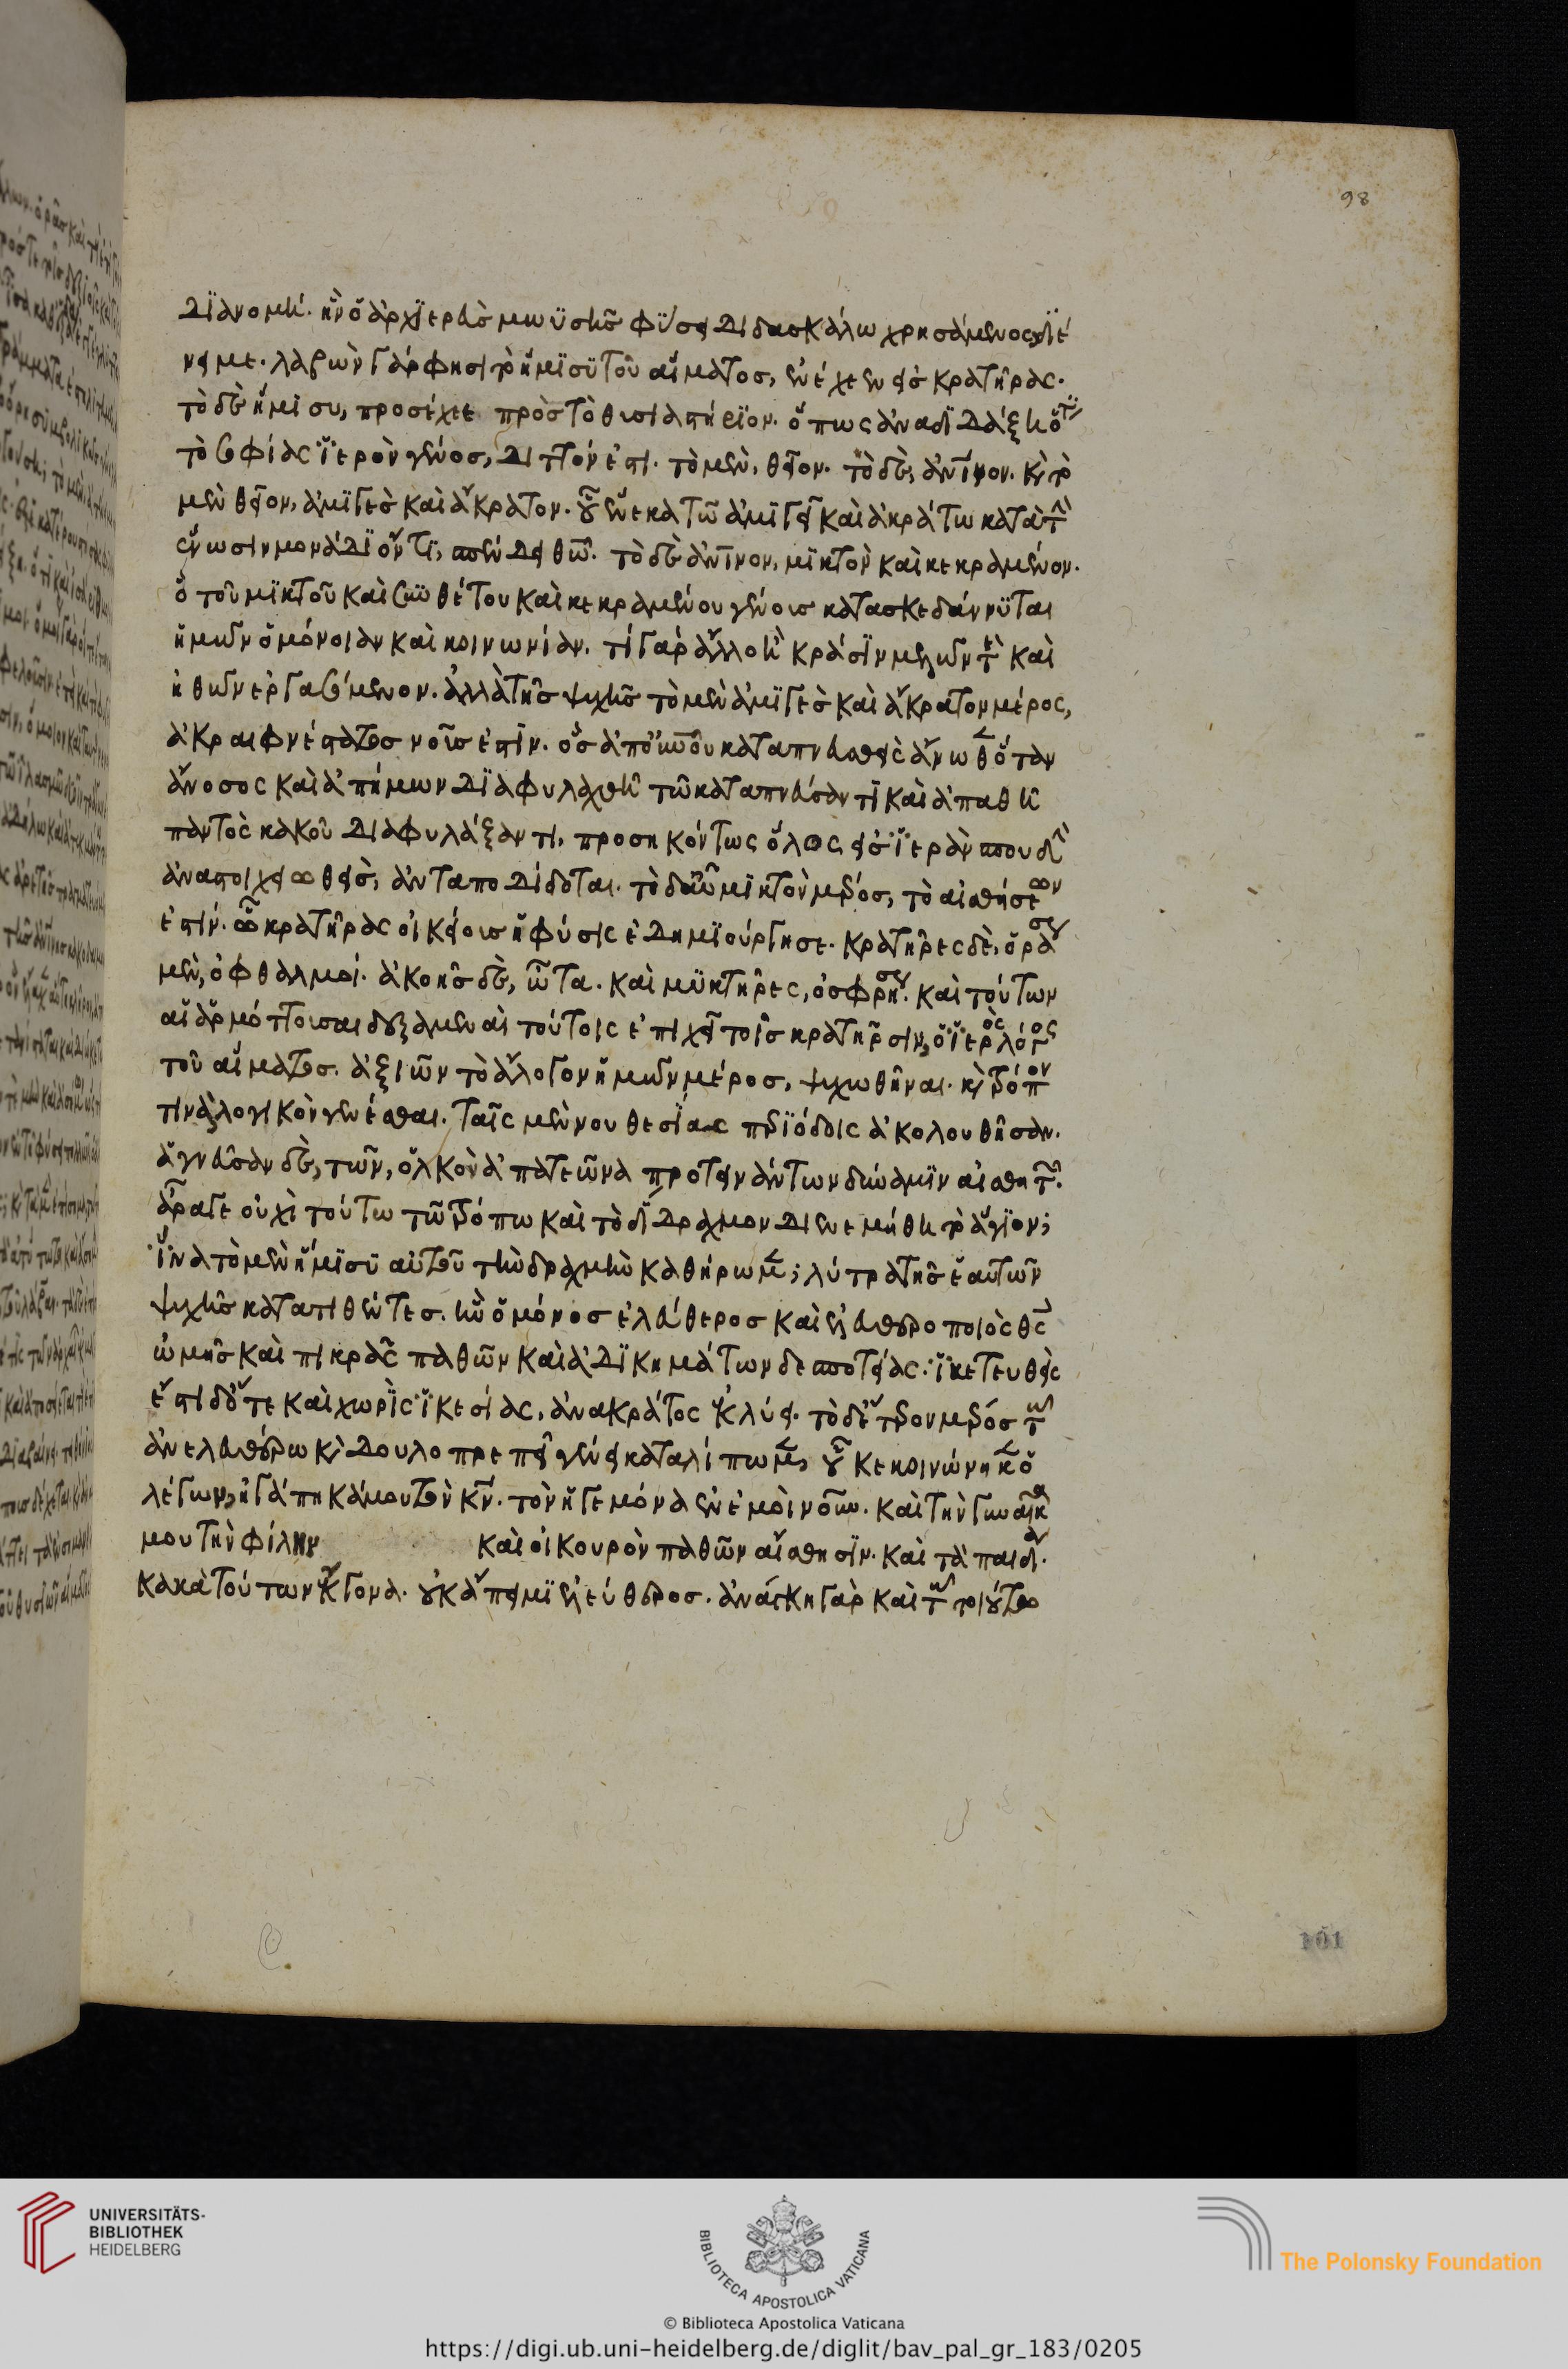 διανομή· ἣν ὁ ἀρχιερεὺς μωϋσῆς φύσει διδασκάλω χρησάμενος διέ
νειμε. λαβὼν γάρ φησι τὸ ἥμισυ τοῦ αἵματος, ἐνέχεεν εἰς κρατῆρας.
τὸ δὲ ἥμισυ, προσέχεε πρὸς τὸ θυσιαστήριον. ὅπως ἀναδιδάξη ὅτι
τὸ σοφίας ἱερὸν γένος, διττόν ἐστι. τὸ μὲν, θεῖον. τὸ δὲ, ἀνῖνον. κὶ τὸ
μὲν θεῖον, ἀμιγὲς καὶ ἄκρατον. οὗ ἕνεκα τῶ ἀμιγεῖ καὶ ἀκράτω κατὰ τὴν
ἕνωσιν μονάδι ὄντι, σπένδει θῶ. τὸ δὲ ἀνῖνον, μικτὸν καὶ κεκραμένον.
ὃ τοῦ μικτοῦ καὶ συνθέτου καὶ κεκραμένου γένους κατασκεδάννυται
ἡμῶν ὁμόνοιαν καὶ κοινωνίαν. τί γὰρ ἄλλο ἢ κράσιν μερῶν τὲ καὶ
ἠθῶν ἐργασόμενον. ἀλλὰ τῆς ψυχῆς τὸ μὲν ἀμιγὲς καὶ ἄκρατον μέρος,
ἀκραιφνέστατος νοῦς ἐστίν. ὃς ἀπ' οὐνοῦ καταπνευσθεὶς ἄνωθεν ὅταν
ἄνοσος καὶ ἀπήμων διαφυλαχθῆ τῶ καταπνεύσαντι καὶ ἀπαθῆ
παντὸς κακοῦ διαφυλάξαντι, προσηκόντως ὅλος εἰς ἱερὰν σπονδὴν
ἀναστοιχειωθεὶς, ἀνταποδίδοται. τὸ δ' αὖ μικτὸν μέρος, τὸ αἰσθήσεων
ἐστίν. ὧν κρατῆρας οἰκείους ἡ φύσις ἐδημιούργησε. κρατῆρες δὲ, ὁράσεως
μὲν, ὀφθαλμοί. ἀκοῆς δὲ, ὦτα. καὶ μυκτῆρες, ὀσφρήσεως. καὶ τούτων
αἱ ἁρμόττουσαι δεξαμεναὶ τούτοις ἐπιχεῖ τοῖς κρατῆρσιν, ὁ ἱερὸς λόγος
τοῦ αἵματος. ἀξιῶν τὸ ἄλογον ἡμῶν μέρος, ψυχωθῆναι. κὶ τρόπον
τινὰ λογικὸν γενέσθαι. ταῖς μὲν νουθεσίαις περιόδοις ἀκολουθῆσαν.
ἁγνεῦσαν δὲ, τῶν, ὁλκὸν ἀπατεῶνα προτεινάντων δύναμιν αἰσθητῶν.
ἆρά γε οὐχὶ τούτω τῶ τρόπω καὶ τὸ δίδραχμον διενεμήθη τὸ ἅγιον;
ἵνα τὸ μὲν ἥμισυ αὐτοῦ τὴν δραχμὴν καθιερῶμεν; λύτρα τῆς ἑαυτῶν
ψυχῆς κατατιθέντες. ἣν ὁ μόνος ἐλεύθερος καὶ ἐλευθεροποιὸς θς
ὠμῆς καὶ πικρᾶς παθῶν καὶ ἀδικημάτων δεσποτείας· ἱκετευθεὶς
ἔστι δ' ὅτε καὶ χωρὶς ἱκεσίας, ἀνακράτος ἐκλύει. τὸ δ' ἕτερον μέρος τῶ
ἀνελευθέρω κὶ δουλοπρεπεῖ γένει καταλίπωμεν, οὗ κεκοινώνηκεν ὁ
λέγων, ἠγάπηκά μου τὸν κν. τὸν ἡγεμόνα ἐν ἐμοὶ νοῦν. καὶ τὴν γυναῖκα
μου τὴν φίλην καὶ οἰκουρὸν παθῶν αἴσθησιν. καὶ τὰ παιδία.
κακὰ τούτων ἔκγονα. οὐκ ἄπειμι ἐλεύθερος. ἀνάγκη γὰρ καὶ τῶ τοιούτω
98
101
UNIVERSITÄTS-
BIBLIOTHEK
HEIDELBERG
BIBLIOTECA APOSTOLICA VATICANA
The Polonsky Foundation
© Biblioteca Apostolica Vaticana
https://digi.ub.uni-heidelberg.de/diglit/bav_pal_gr_183/0205